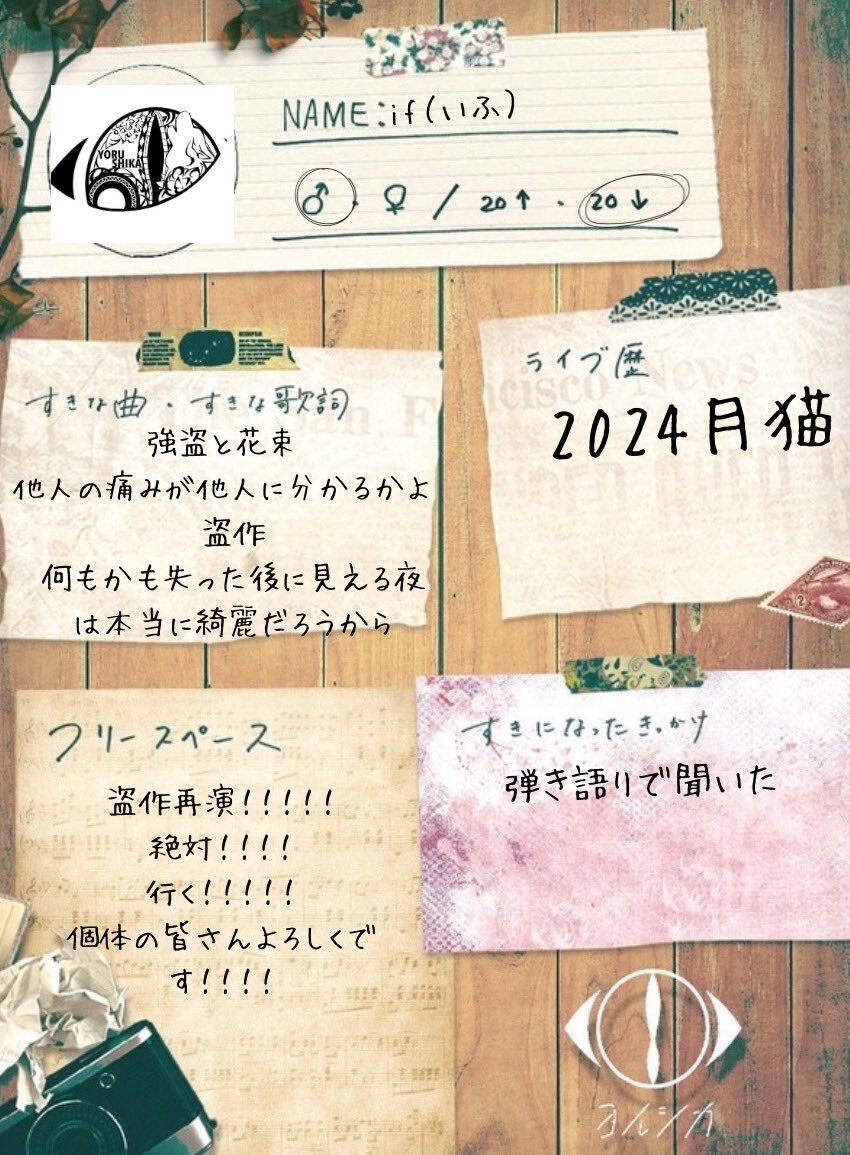 YORU
SHIKA
NAME:if(いふ)
♂・♀/20↑・20↓
すきな曲・すきな歌詞
強盗と花束
他人の痛みが他人に分かるかよ
盗作
何もかも失った後に見える夜
は本当に綺麗だろうから
ライブ歴
Francisco News
2024月猫
フリースペース
盗作再演！！！！！
絶対！！！！
行く！！！！！
個体の皆さんよろしくで
す！！！！
すきになったきっかけ
弾き語りで聞いた
ヨルシカ